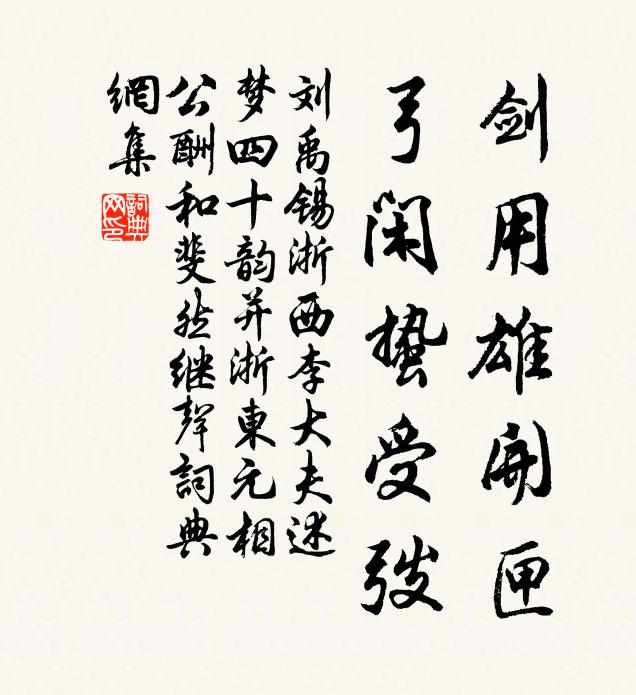 剑用雄开匣
弓闲蛰受弢
刘禹锡浙西李大夫述
梦四十韵并浙東元相
公酬和斐然继聲詞典
網集
詞典网印